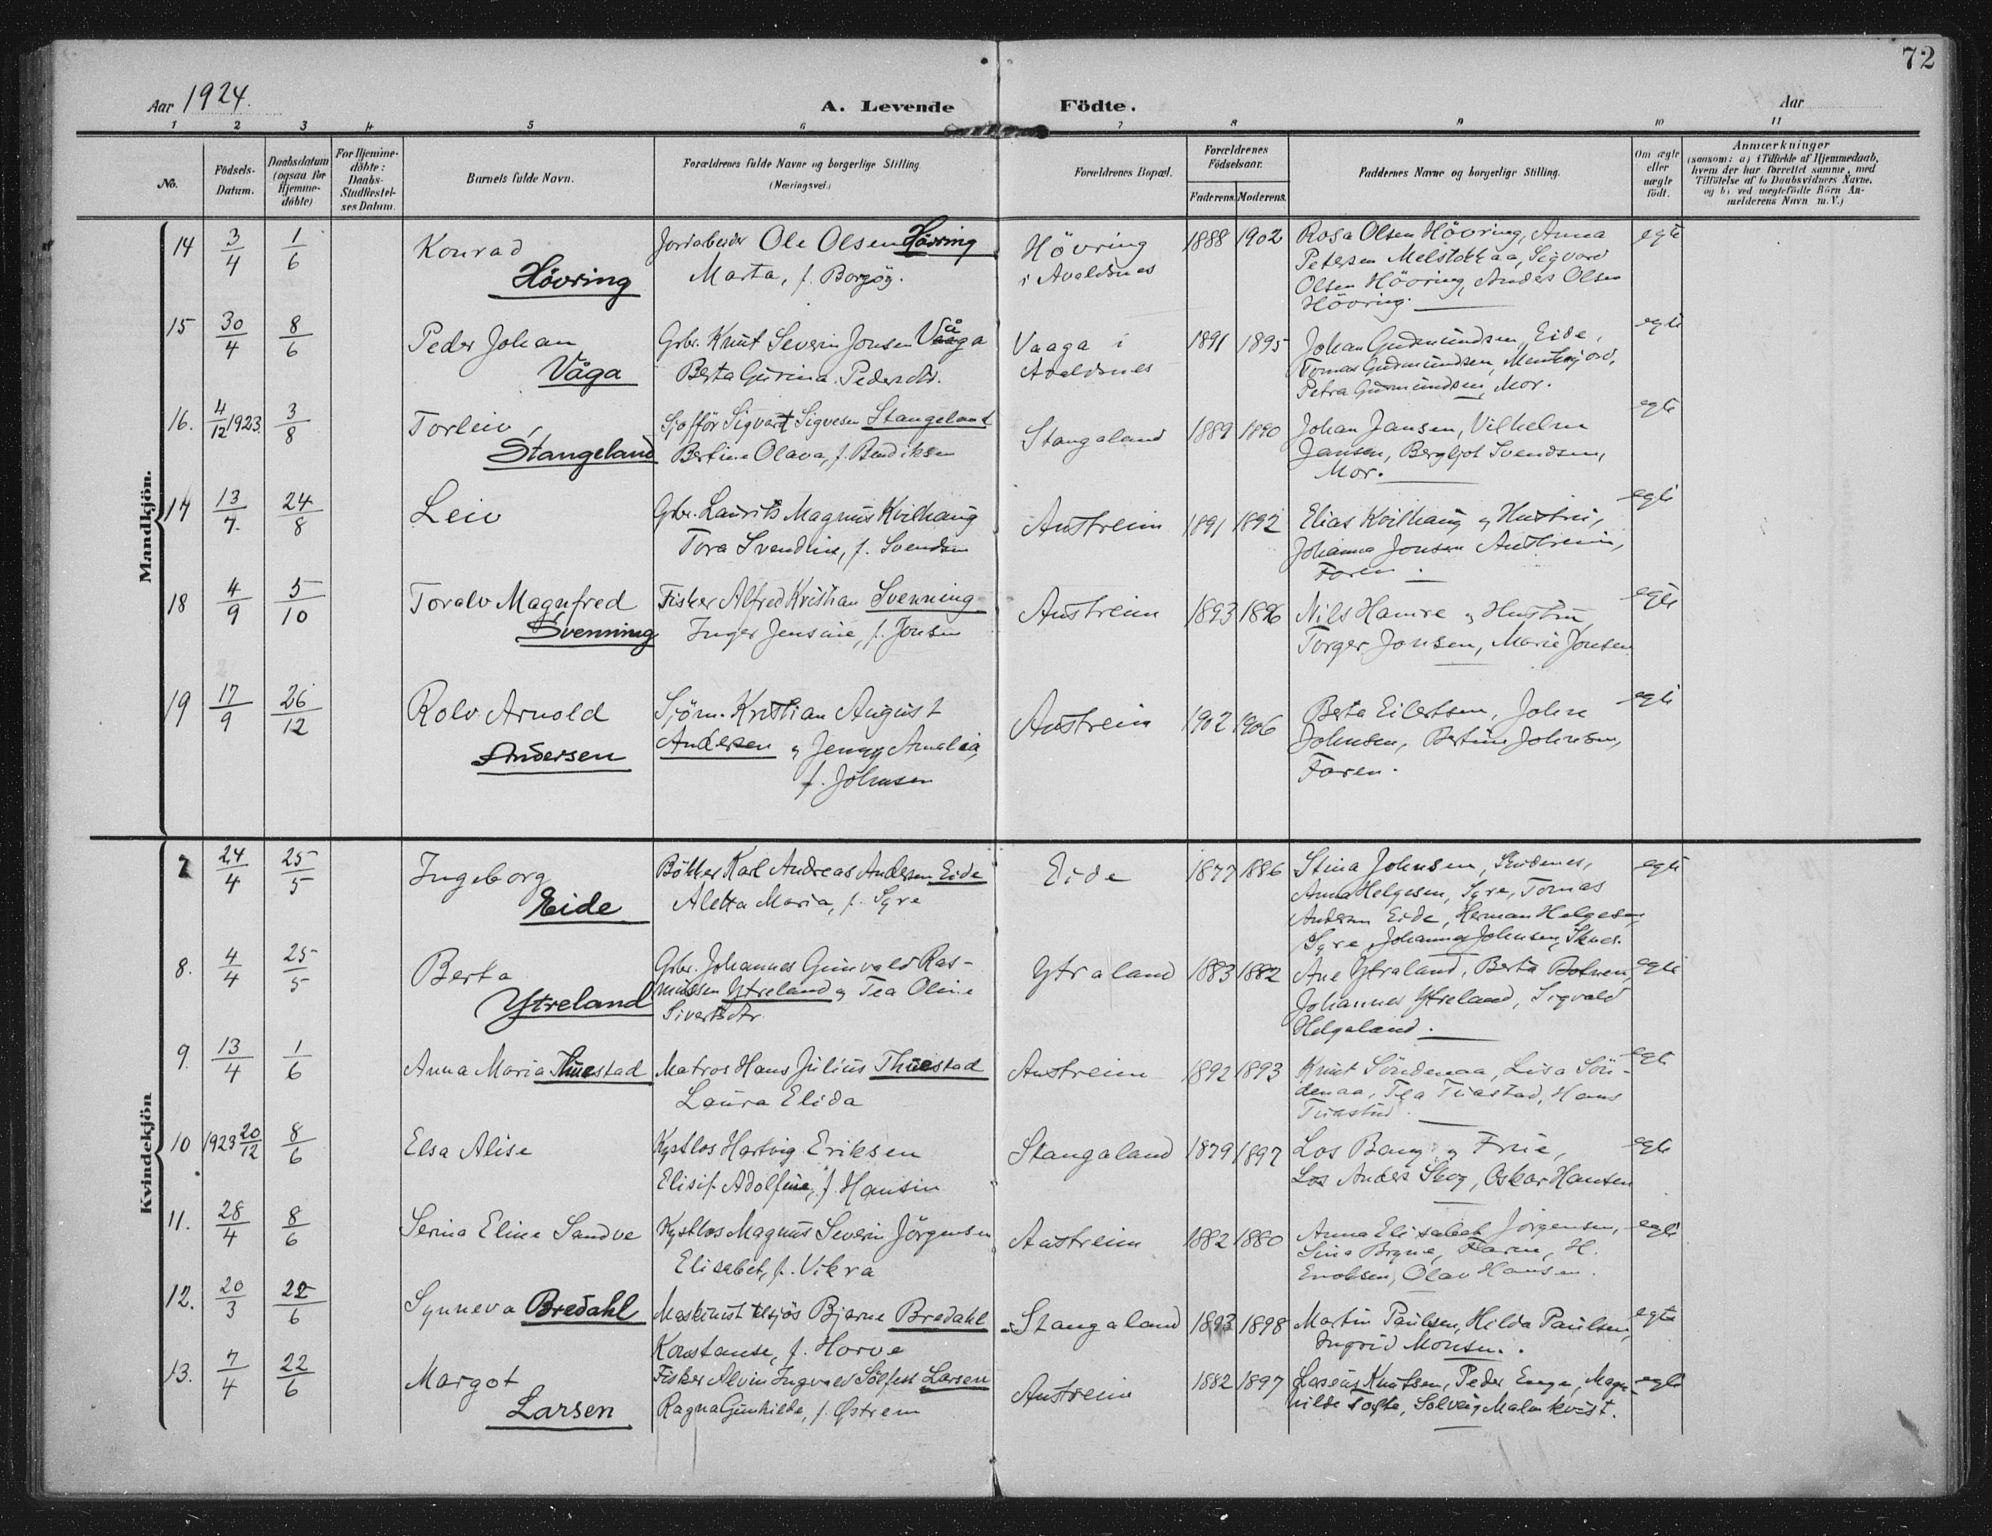 72
Aar 1924.
A. Levende Födte.
Aar
1 2 3 4 5 6 7 8 9 10 11
No.
Födsels-
Datum.
Daabsdatum
(ogsaa for
Hjemme-
döbte)
For Hjemme-
döbte:
Daabs-
Stadfæstel-
ses Datum.
Barnets fulde Navn.
Forældrenes fulde Navne og borgerlige Stilling.
(Næringsvei.)
Forældrenes Bopæl.
Forældrenes
Födselsaar.
Faderens. Moderens.
Faddernes Navne og borgerlige Stilling.
Om ægte
eller
uægte
født.
Anmærkninger
(saasom: a) i Tilfælde af Hjemmedaab,
hvem der har forrettet samme, med
Tilföielse af to Daabsvidners Navne,
og b) ved uægtefödte Börn An-
melderens Navn m. V.)
Mandkjön.
14 3/4 1/6 Konrad
Hövring
Jordarbeider Ole Olsen Hövring
Marta, f. Borgøy.
Hövring
i Avaldsnes
1888 1902
Rosa Olsen Hövring, Anna
Petersen Melstokkaa, Sigvard
Olsen Hövring, Anders Olsen
Hövring.
egte
15 30/4 8/6 Peder Johan
Våga
Grbr. Knut Severin Jonsen Vaaga
Berta Gurina Pedersdtr.
Vaaga i
Avaldsnes
1891 1895
Johan Gudmundsen, Eide,
Tomas Gudmundsen,
Petra Gudmundsen, Mor.
egte
16. 4/12 1923. 3/8 Torleiv,
Stangeland
Sjofför Sigvart Sigvesen Stangeland
Bertine Olava, f. Bendiksen
Stangaland
1889 1890
Johan Jansen, Vilhelm
Jansen, Bergljot Svendsen,
Mor.
egte
17 13/7. 24/8 Leiv
Grbr. Laurits Magnus Kvilhaug
Tora Svendine, f. Svendsen
Austreim
1891 1892
Elias Kvilhaug og Hustru,
Johanna Jonsen Austreim,
Faren.
egte
18 4/9 5/10 Toralv Magnfred
Svenning
Fisker Alfred Kristian Svenning
Inger Jensine, f. Jonsen
Austreim
1893 1896
Nils Hamre og Hustru,
Torger Jonsen, Marie Jonsen
egte
19 17/9 26/12 Rolv Arnold
Andersen
Sjöm. Kristian August
Andersen og Jenny Amalia,
f. Johnsen
Austreim
1902 1906
Berta Eilertsen, John
Johnsen, Bertine Johnsen,
Faren.
egte
Kvindekjön
7 24/4 25/5 Ingeborg
Eide
Bökker Karl Andreas Andersen Eide
Aletta Maria, f. Syre
Eide
1877 1886
Stina Johnsen, Skudenes,
Anna Helgesen, Syre, Tomas
Andersen Eide, Herman Helgesen,
Syre, Johannes Johnsen, Skudes.
egte
8. 4/4 25/5 Berta
Ytreland
Grbr. Johannes Gunvald Ras-
mussen Ytreland og Tea Oline
Sivertsdtr.
Ytraland
1883 1882
Ane Ytraland, Berta Botnen,
Johannes Ytreland, Sigvald
Helgaland.
egte
9. 13/4 1/6 Anna Maria Thuestad
Matros Hans Julius Thuestad
Laura Elida
Austreim
1892 1893
Knut Söndenaa, Lisa Sön-
denaa, Tea Tuastad, Hans
Tuastad.
egte
10 1923 20/12 8/6 Elsa Alise
Kystlos Hartvig Eriksen
Elisif Adolfine, f. Hansen
Stangaland
1879 1897
Los Bang og Frue,
Los Anders Skog, Oskar Hansen
egte
11. 28/4 8/6 Serina Eline Sandve
Kystlos Magnus Severin Jörgensen
Elisabet, f. Vikra
Austreim
1882 1880
Anna Elisabet Jörgensen,
Sina Brgne, Faren, H.
Enoksen, Olav Hansen.
egte
12. 20/3 22/6 Synneva Bredahl
Maskinist tilsjös Bjarne Bredahl
Konstanse, f. Horve
Stangaland
1893 1898
Martin Paulsen, Hilda Paulsen,
Ingrid Monsen.
egte
13. 7/4 22/6 Margot
Larsen
Fisker Alvin Ingvald Sölfest Larsen
Ragna Gunhilde, f. Østrem
Austreim
1882 1897
Knutsen, Peder Enge, Mag-
nhilde Tofte, Solveig Malmkvist.
egte